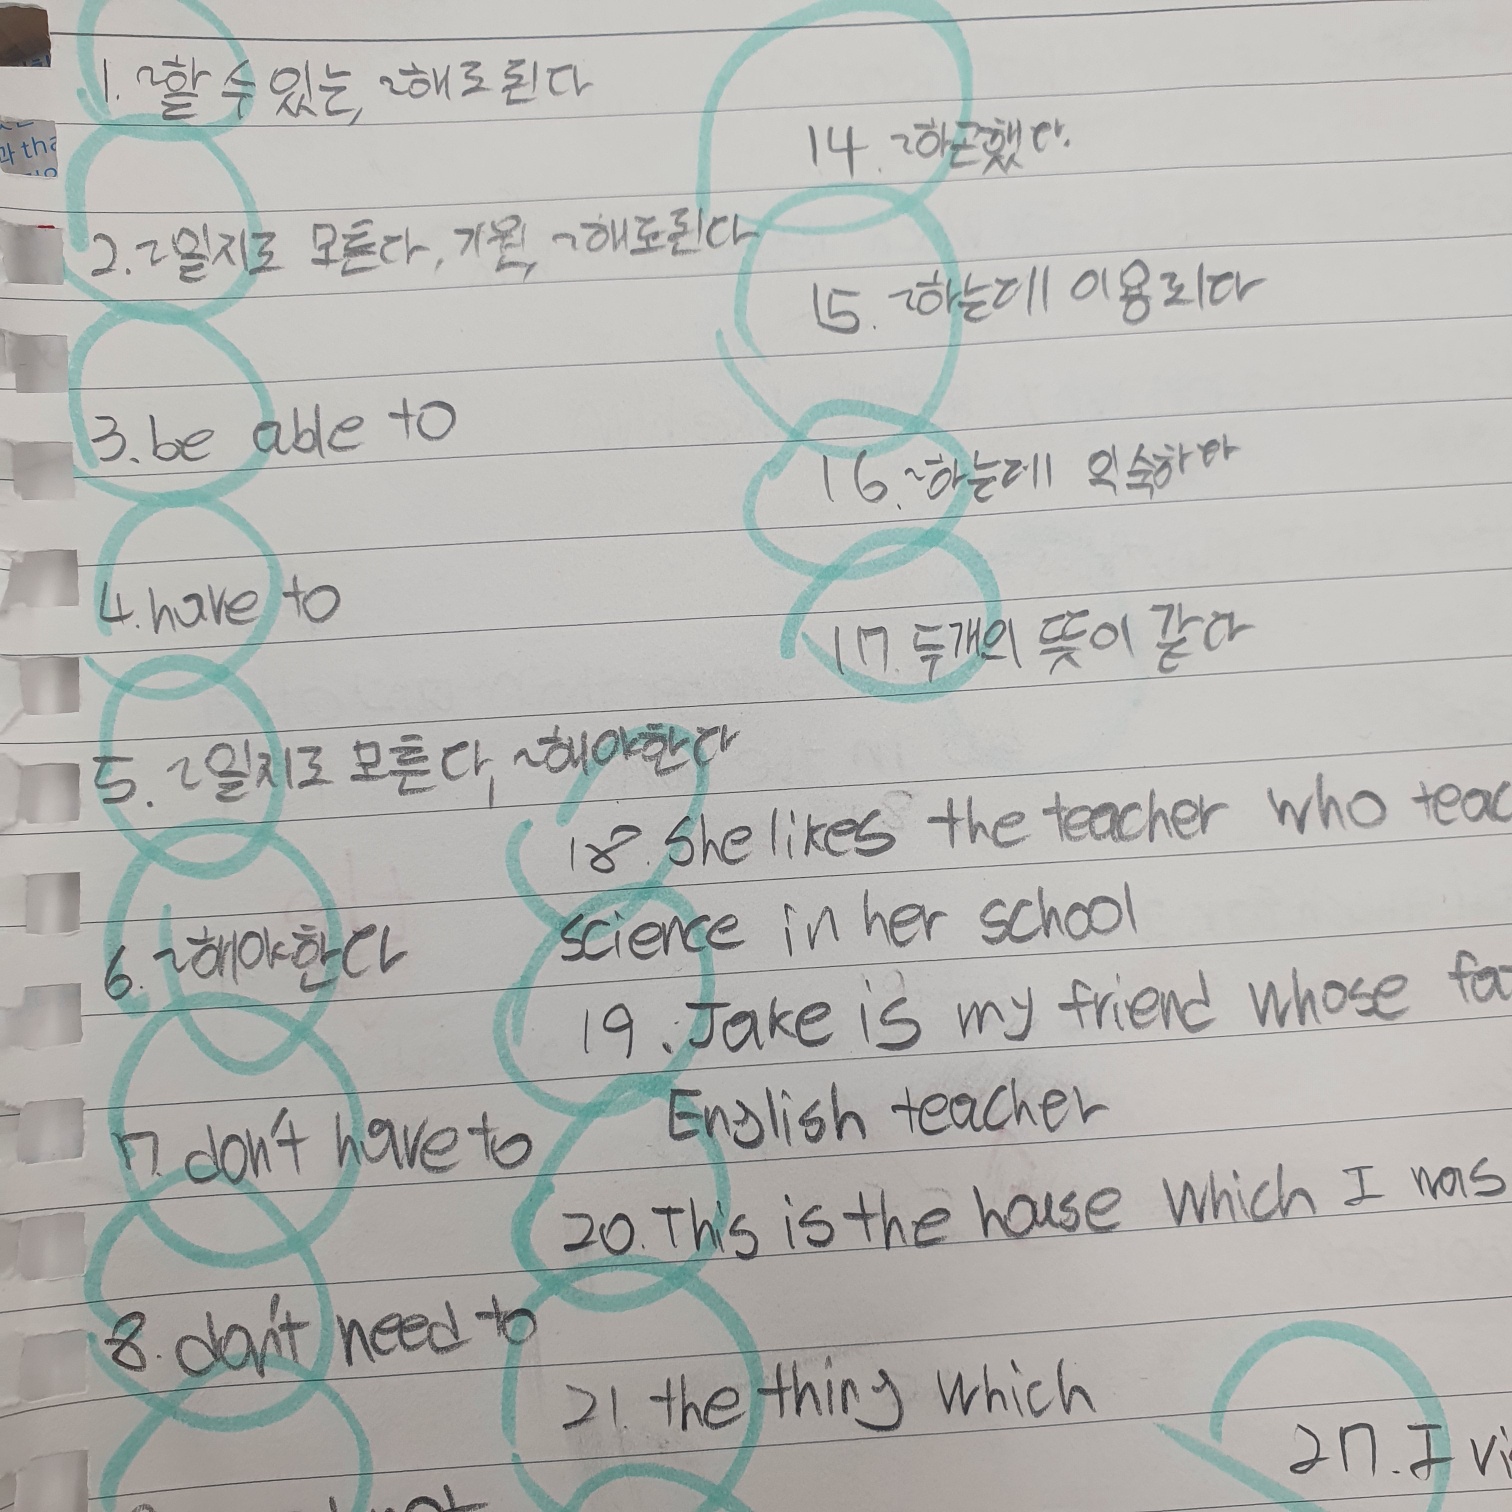 1. ~할 수 있는, ~해도 된다
2. ~일지도 모른다, 기원, ~해도된다
3. be able to
4. have to
5. ~일지도 모른다, ~해야한다
6. ~해야한다
7. don't have to
8. don't need to
14. ~하곤했다.
15. ~하는데 이용되다
16. ~하는데 익숙하다
17. 두개의 뜻이 같다
18. She likes the teacher who teac
science in her school
19. Jake is my friend whose fa
English teacher
20. This is the house which I was
21. the thing which
27. I vi